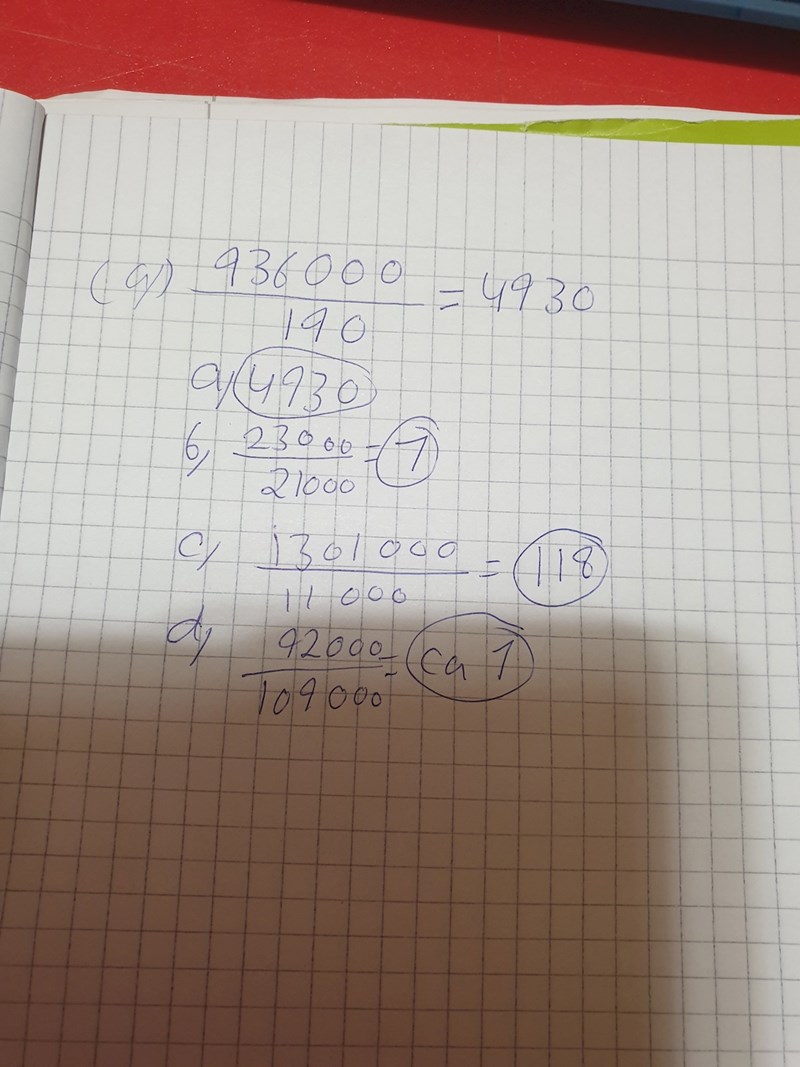 (a,) 936000 / 190 = 4930
a, 4930
b, 23000 / 21000 = 1
c, 1301000 / 11000 = 118
d, 92000 / 109000 = ca 1